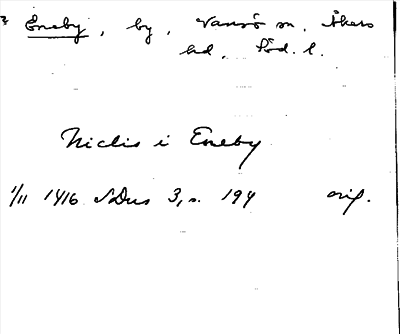 Eneby, by, Vansö sn, Åkers
hd, Söd. l.
Niclis i Eneby
1/11 1416 SDns 3, s. 194 orig.